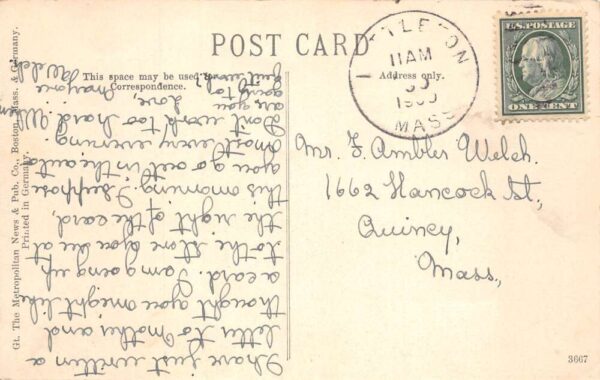 POST CARD
This space may be used for
Correspondence.
Address only.
11AM
MASS
U.S. POSTAGE
ONE CENT
Mr. F. Ambler Welch.
1662 Hancock St.,
Quincy,
Mass.,
I have just written a
letter to Mother and
thought you might like
a card. I am going up
to the store you see at
the right of the card,
this morning. I suppose
you go out in the auto
most every evening.
Don't work too hard. When
are you
going to
quit work?
Love,
Welch
Gt. The Metropolitan News & Pub. Co., Boston, Mass. & Germany.
Printed in Germany.
3667